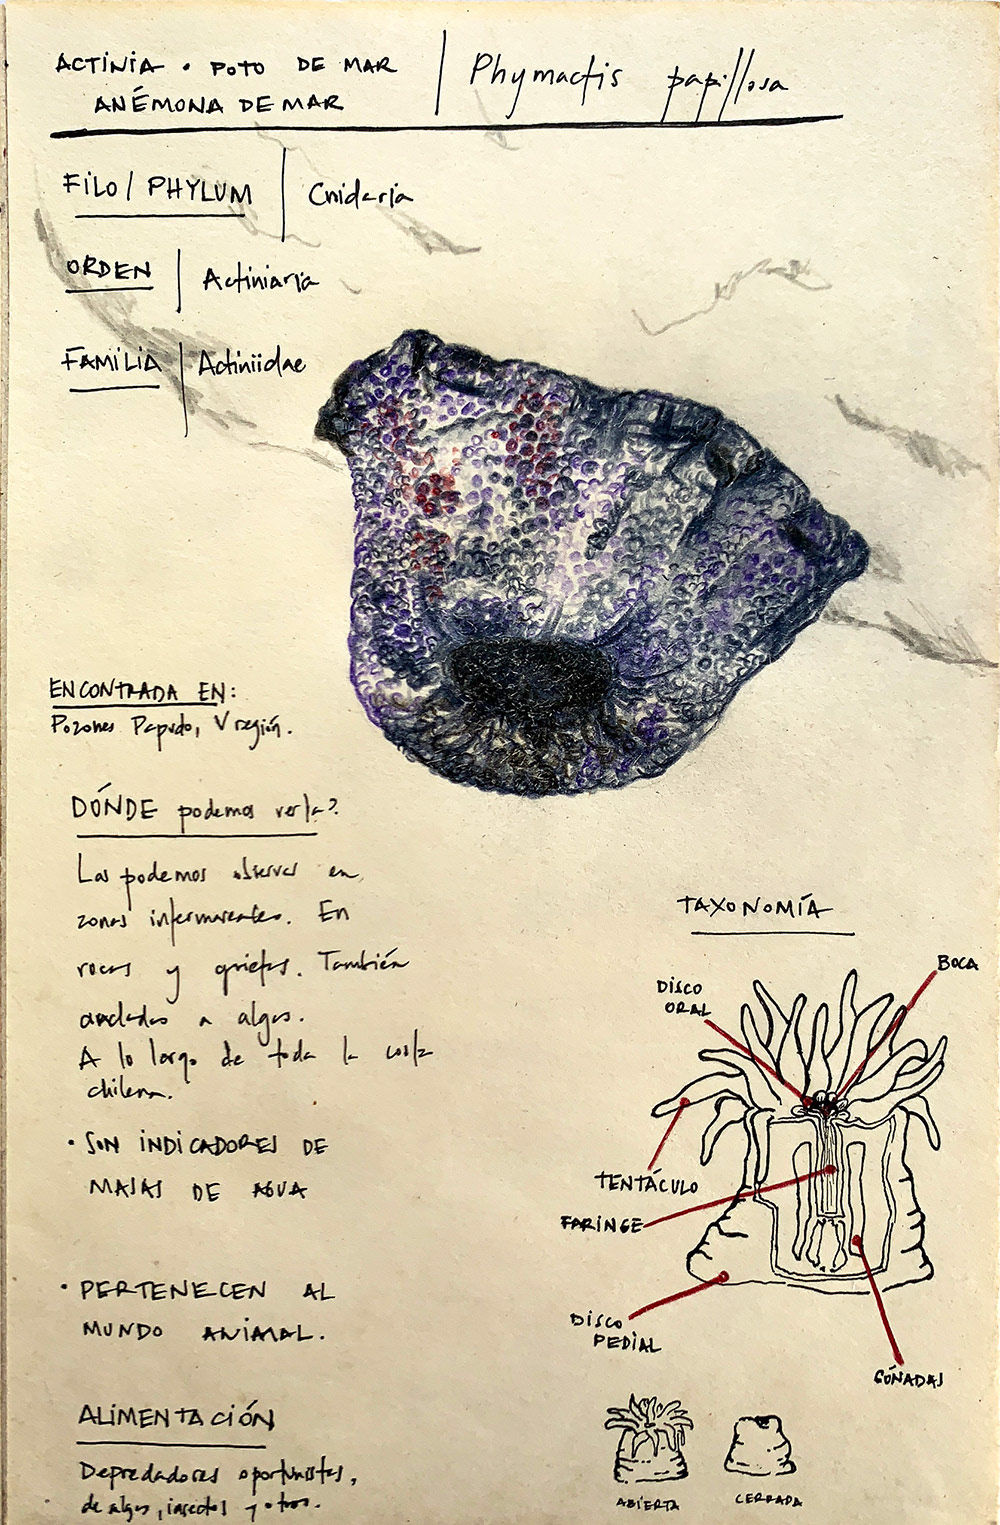 ACTINIA • POTO DE MAR
ANÉMONA DE MAR
Phymactis papillosa
FILO / PHYLUM
Cnidaria
ORDEN
Actiniaria
FAMILIA
Actiniidae
ENCONTRADA EN:
Pozones Papudo, V región.
DÓNDE podemos verla?
Las podemos observar en
zonas intermareales. En
rocas y grietas. También
ancladas a algas.
A lo largo de toda la costa
chilena.
• SON INDICADORES DE
MASAS DE AGUA
• PERTENECEN AL
MUNDO ANIMAL.
ALIMENTACIÓN
Depredadores oportunistas,
de algas, insectos y otros.
TAXONOMÍA
BOCA
DISCO
ORAL
TENTÁCULO
FARINGE
DISCO
PEDIAL
GÓNADAS
ABIERTA
CERRADA